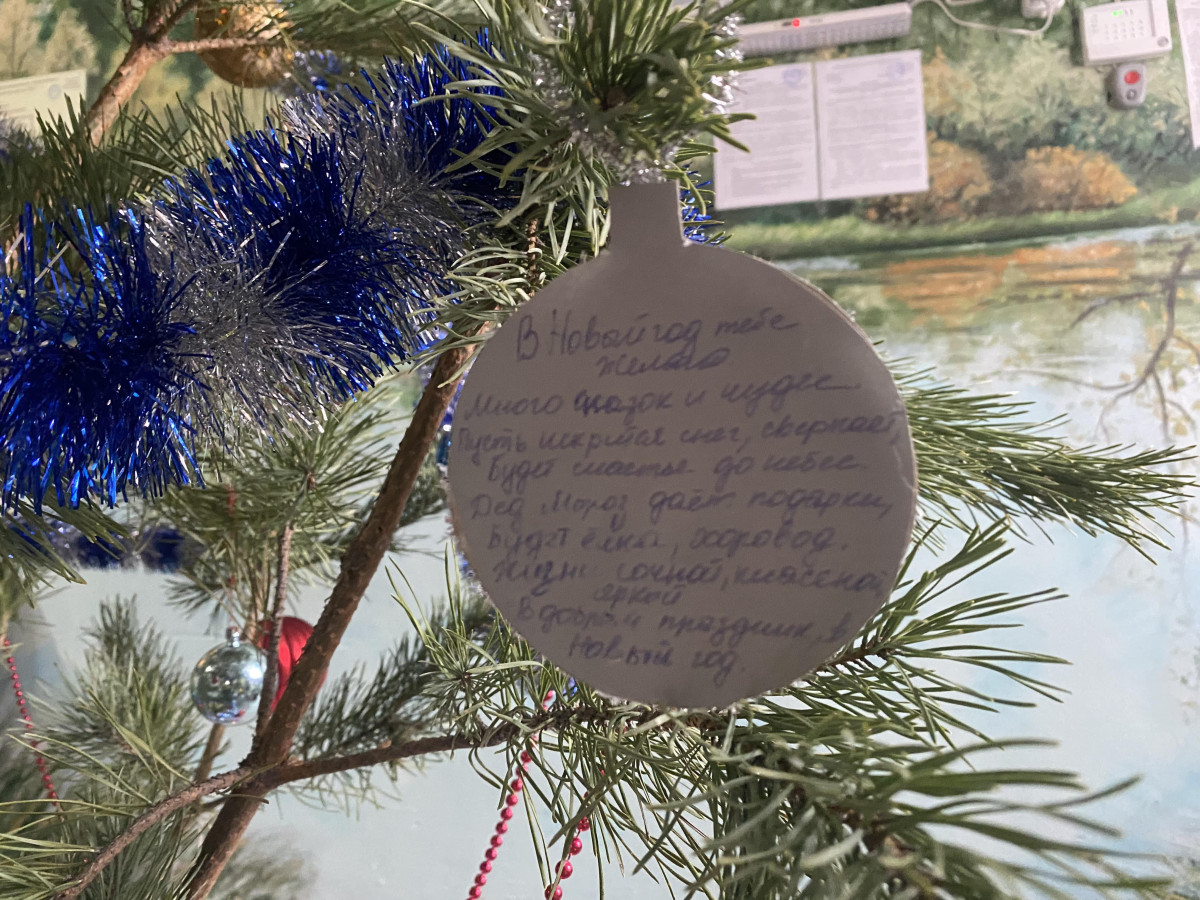 В Новый год тебе
желаю
Много сказок и чудес
Пусть искрится снег, сверкает,
Будет счастье до небес.
Дед Мороз даёт подарки,
Будет ёлка, хоровод.
Жизни сочной, классной,
яркой
В добром празднике, в
Новый год.